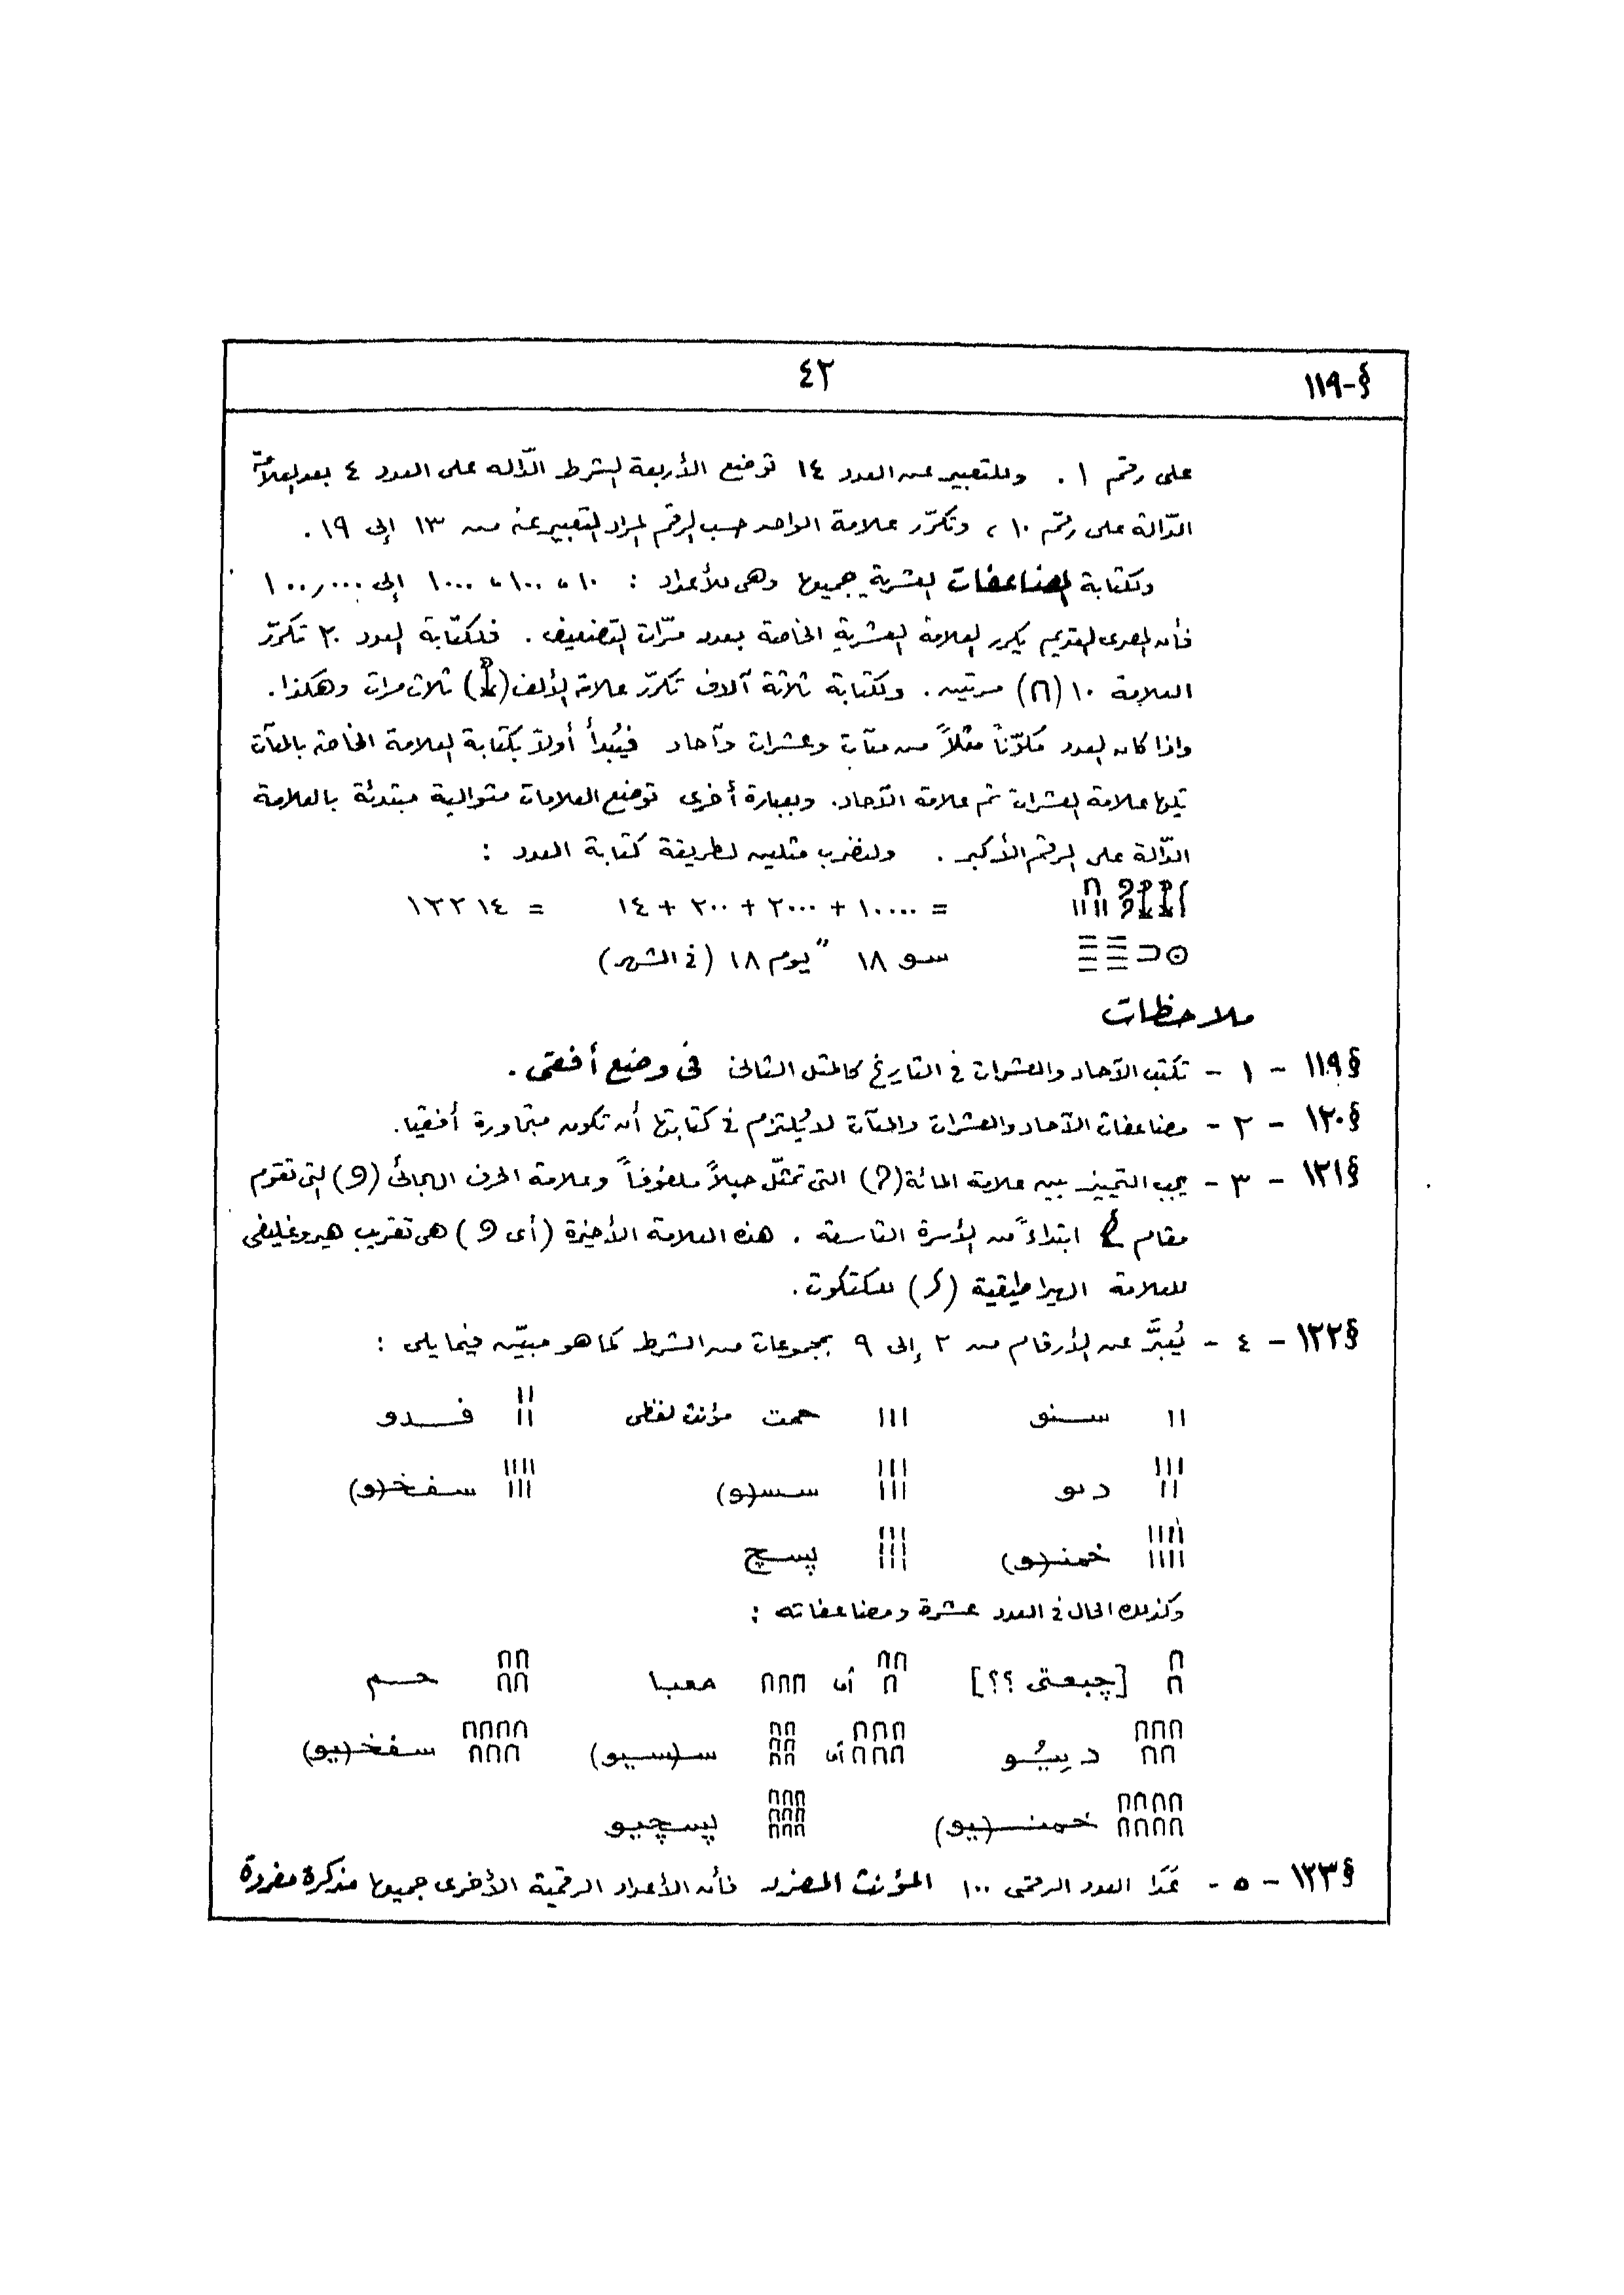 §-١١٩
٤٢
على رقم ١ . وللتعبير عن العدد ١٤ توضع الأربعة الشرط الدّاله على العدد ٤ بعد العلامة
الدّالة على رقم ١٠ ، وتكرّر علامة الواحد حسب الرقم المراد التعبير عنه من ١٣ إلى ١٩ .
ولكتابة المضاعفات العشرية جميعها وهى للأعداد : ١٠ ، ١٠٠ ، ١٠٠٠ إلى ١٠٠,٠٠٠
فأن المصرى القديم يكرر العلامة العشرية الخاصة بعدد مرّات التضعيف . فلكتابة العدد ٢٠ تكرّر
العلامة ١٠ (𓎆) مرتين . ولكتابة ثلاثة آلاف تكرّر علامة الألف (𓆼) ثلاث مرات وهكذا .
واذا كان العدد مكوّناً مثلاً من مئات وعشرات وآحاد فيُبدأ أولاً بكتابة العلامة الخاصة بالمئات
تليها علامة العشرات ثم علامة الآحاد . وبعبارة أخرى توضع العلامات متوالية مبتدئة بالعلامة
الدّالة على الرقم الأكبر . ولنضرب مثلين لطريقة كتابة العدد :
= ١٠٠٠٠ + ٢٠٠٠ + ٢٠٠ + ١٤ = ١٢٢١٤
سو ١٨ " يوم ١٨ (فى الشهر)
ملاحظات
§١١٩ - ١ - تكتب الآحاد والعشرات فى التاريخ كالمثل الثانى فى وضع أفقى .
§١٢٠ - ٢ - مضاعفات الآحاد والعشرات والمئات لا يُلتزم فى كتابتها أن تكون متجاورة أفقيا .
§١٢١ - ٣ - يجب التمييز بين علامة المائة (𓍢) التى تمثّل حبلاً ملفوفاً وعلامة الحرف الهجائى (𓏲) التى تقوم
مقام 𓅱 ابتداءً من الأسرة التاسعة . هذه العلامة الأخيرة (أى 𓏲) هى تقريب هيروغليفى
للعلامة الهيراطيقية () للكتكوت .
§١٢٢ - ٤ - يُعبَّر عن الأرقام من ٢ إلى ٩ بمجموعات من الشرط كما هو مبيّن فيما يلى :
ıı سنو ııı خمت مؤنث لفظى ıı ıı فدو
ııı ıı ديو ııı ııı سسـ(و) ıııı ııı سفخـ(و)
ıııı ıııı خمنـ(و) ııı ııı ııı پسچ
وكذلك الحال فى العدد عشرة ومضاعفاته :
∩ ∩ [چبعتى ؟؟] ∩∩ ∩ أ, ∩∩∩ معبا ∩∩ ∩∩ حم
∩∩∩ ∩∩ دييُو ∩∩∩ ∩∩∩ أ, ∩∩ ∩∩ ∩∩ سـ(سيو) ∩∩∩∩ ∩∩∩ سفخـ(يو)
∩∩∩∩ ∩∩∩∩ خمنـ(يو) ∩∩∩ ∩∩∩ ∩∩∩ پسچيو
§١٢٣ - ٥ - عَدَا العدد الرقمى ١٠٠ المؤنث المفرد فأن الأعداد الرقمية الأخرى جميعها مذكرة مفردة